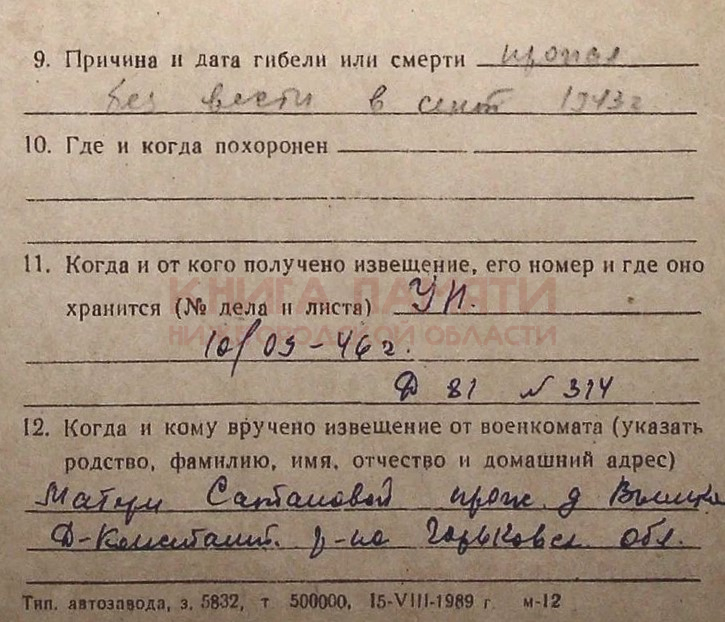 9. Причина и дата гибели или смерти пропал
без вести в сент 1943г
10. Где и когда похоронен
11. Когда и от кого получено извещение, его номер и где оно
КНИГА ПАМЯТИ
хранится (№ дела и листа) УП.
НИЖЕГОРОДСКОЙ ОБЛАСТИ
10/09-46г.
Д 81 N 314
12. Когда и кому вручено извещение от военкомата (указать
родство, фамилию, имя, отчество и домашний адрес)
Матери прож д
Д-Констант. р-на Горьковск обл.
Тип. автозавода, з. 5832, т 500000, 15-VIII-1989 г м-12